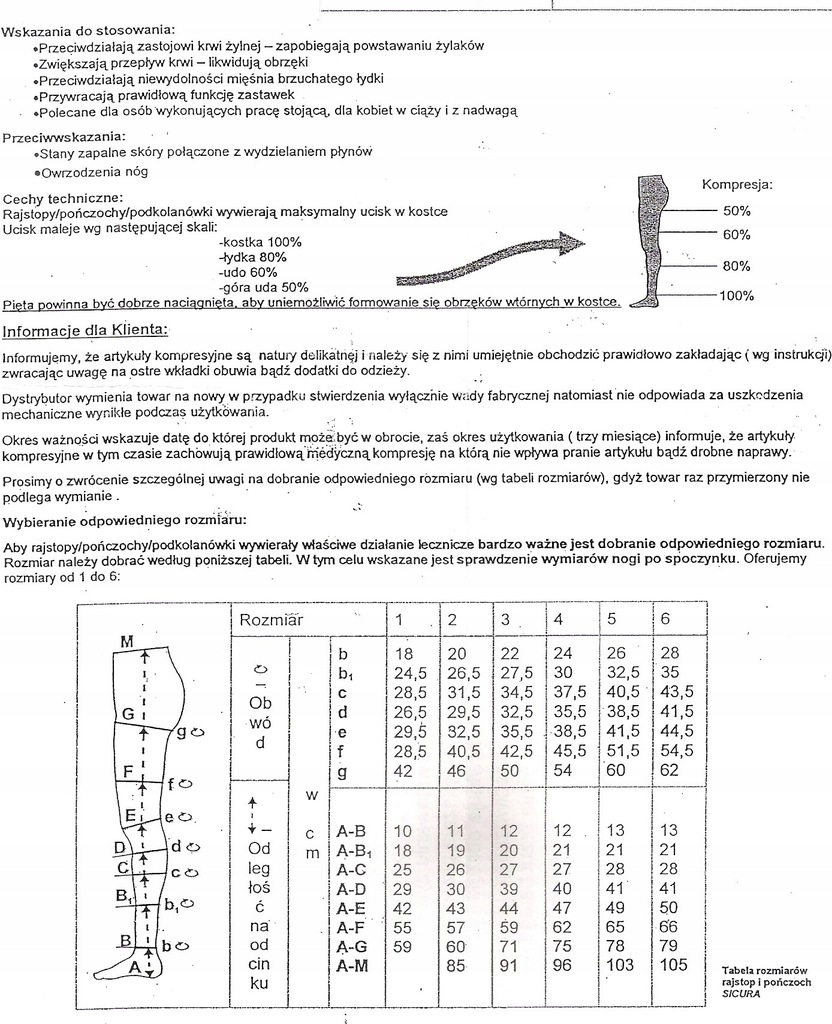 Wskazania do stosowania:
•Przeciwdziałają zastojowi krwi żylnej – zapobiegają powstawaniu żylaków
•Zwiększają przepływ krwi – likwidują obrzęki
•Przeciwdziałają niewydolności mięśnia brzuchatego łydki
•Przywracają prawidłową funkcję zastawek
•Polecane dla osób wykonujących pracę stojącą, dla kobiet w ciąży i z nadwagą
Przeciwwskazania:
•Stany zapalne skóry połączone z wydzielaniem płynów
•Owrzodzenia nóg
Cechy techniczne:
Rajstopy/pończochy/podkolanówki wywierają maksymalny ucisk w kostce
Ucisk maleje wg następującej skali:
-kostka 100%
-łydka 80%
-udo 60%
-góra uda 50%
Kompresja:
50%
60%
80%
100%
Pięta powinna być dobrze naciągnięta, aby uniemożliwić formowanie się obrzęków wtórnych w kostce.
Informacje dla Klienta:
Informujemy, że artykuły kompresyjne są natury delikatnej i należy się z nimi umiejętnie obchodzić prawidłowo zakładając ( wg instrukcji)
zwracając uwagę na ostre wkładki obuwia bądź dodatki do odzieży.
Dystrybutor wymienia towar na nowy w przypadku stwierdzenia wyłącznie wady fabrycznej natomiast nie odpowiada za uszkodzenia
mechaniczne wynikłe podczas użytkowania.
Okres ważności wskazuje datę do której produkt może być w obrocie, zaś okres użytkowania ( trzy miesiące) informuje, że artykuły
kompresyjne w tym czasie zachowują prawidłową medyczną kompresję na którą nie wpływa pranie artykułu bądź drobne naprawy.
Prosimy o zwrócenie szczególnej uwagi na dobranie odpowiedniego rozmiaru (wg tabeli rozmiarów), gdyż towar raz przymierzony nie
podlega wymianie .
Wybieranie odpowiedniego rozmiaru:
Aby rajstopy/pończochy/podkolanówki wywierały właściwe działanie lecznicze bardzo ważne jest dobranie odpowiedniego rozmiaru.
Rozmiar należy dobrać według poniższej tabeli. W tym celu wskazane jest sprawdzenie wymiarów nogi po spoczynku. Oferujemy
rozmiary od 1 do 6:
M
G g
F f
E e
D d
C c
B₁ b₁
B b
A
Rozmiar 1 2 3 4 5 6
–
Ob
wó
d
w
c
m
b 18 20 22 24 26 28
b₁ 24,5 26,5 27,5 30 32,5 35
c 28,5 31,5 34,5 37,5 40,5 43,5
d 26,5 29,5 32,5 35,5 38,5 41,5
e 29,5 32,5 35,5 38,5 41,5 44,5
f 28,5 40,5 42,5 45,5 51,5 54,5
g 42 46 50 54 60 62
–
Od
leg
łoś
ć
na
od
cin
ku
A-B 10 11 12 12 13 13
A-B₁ 18 19 20 21 21 21
A-C 25 26 27 27 28 28
A-D 29 30 39 40 41 41
A-E 42 43 44 47 49 50
A-F 55 57 59 62 65 66
A-G 59 60 71 75 78 79
A-M 85 91 96 103 105
Tabela rozmiarów
rajstop i pończoch
SICURA